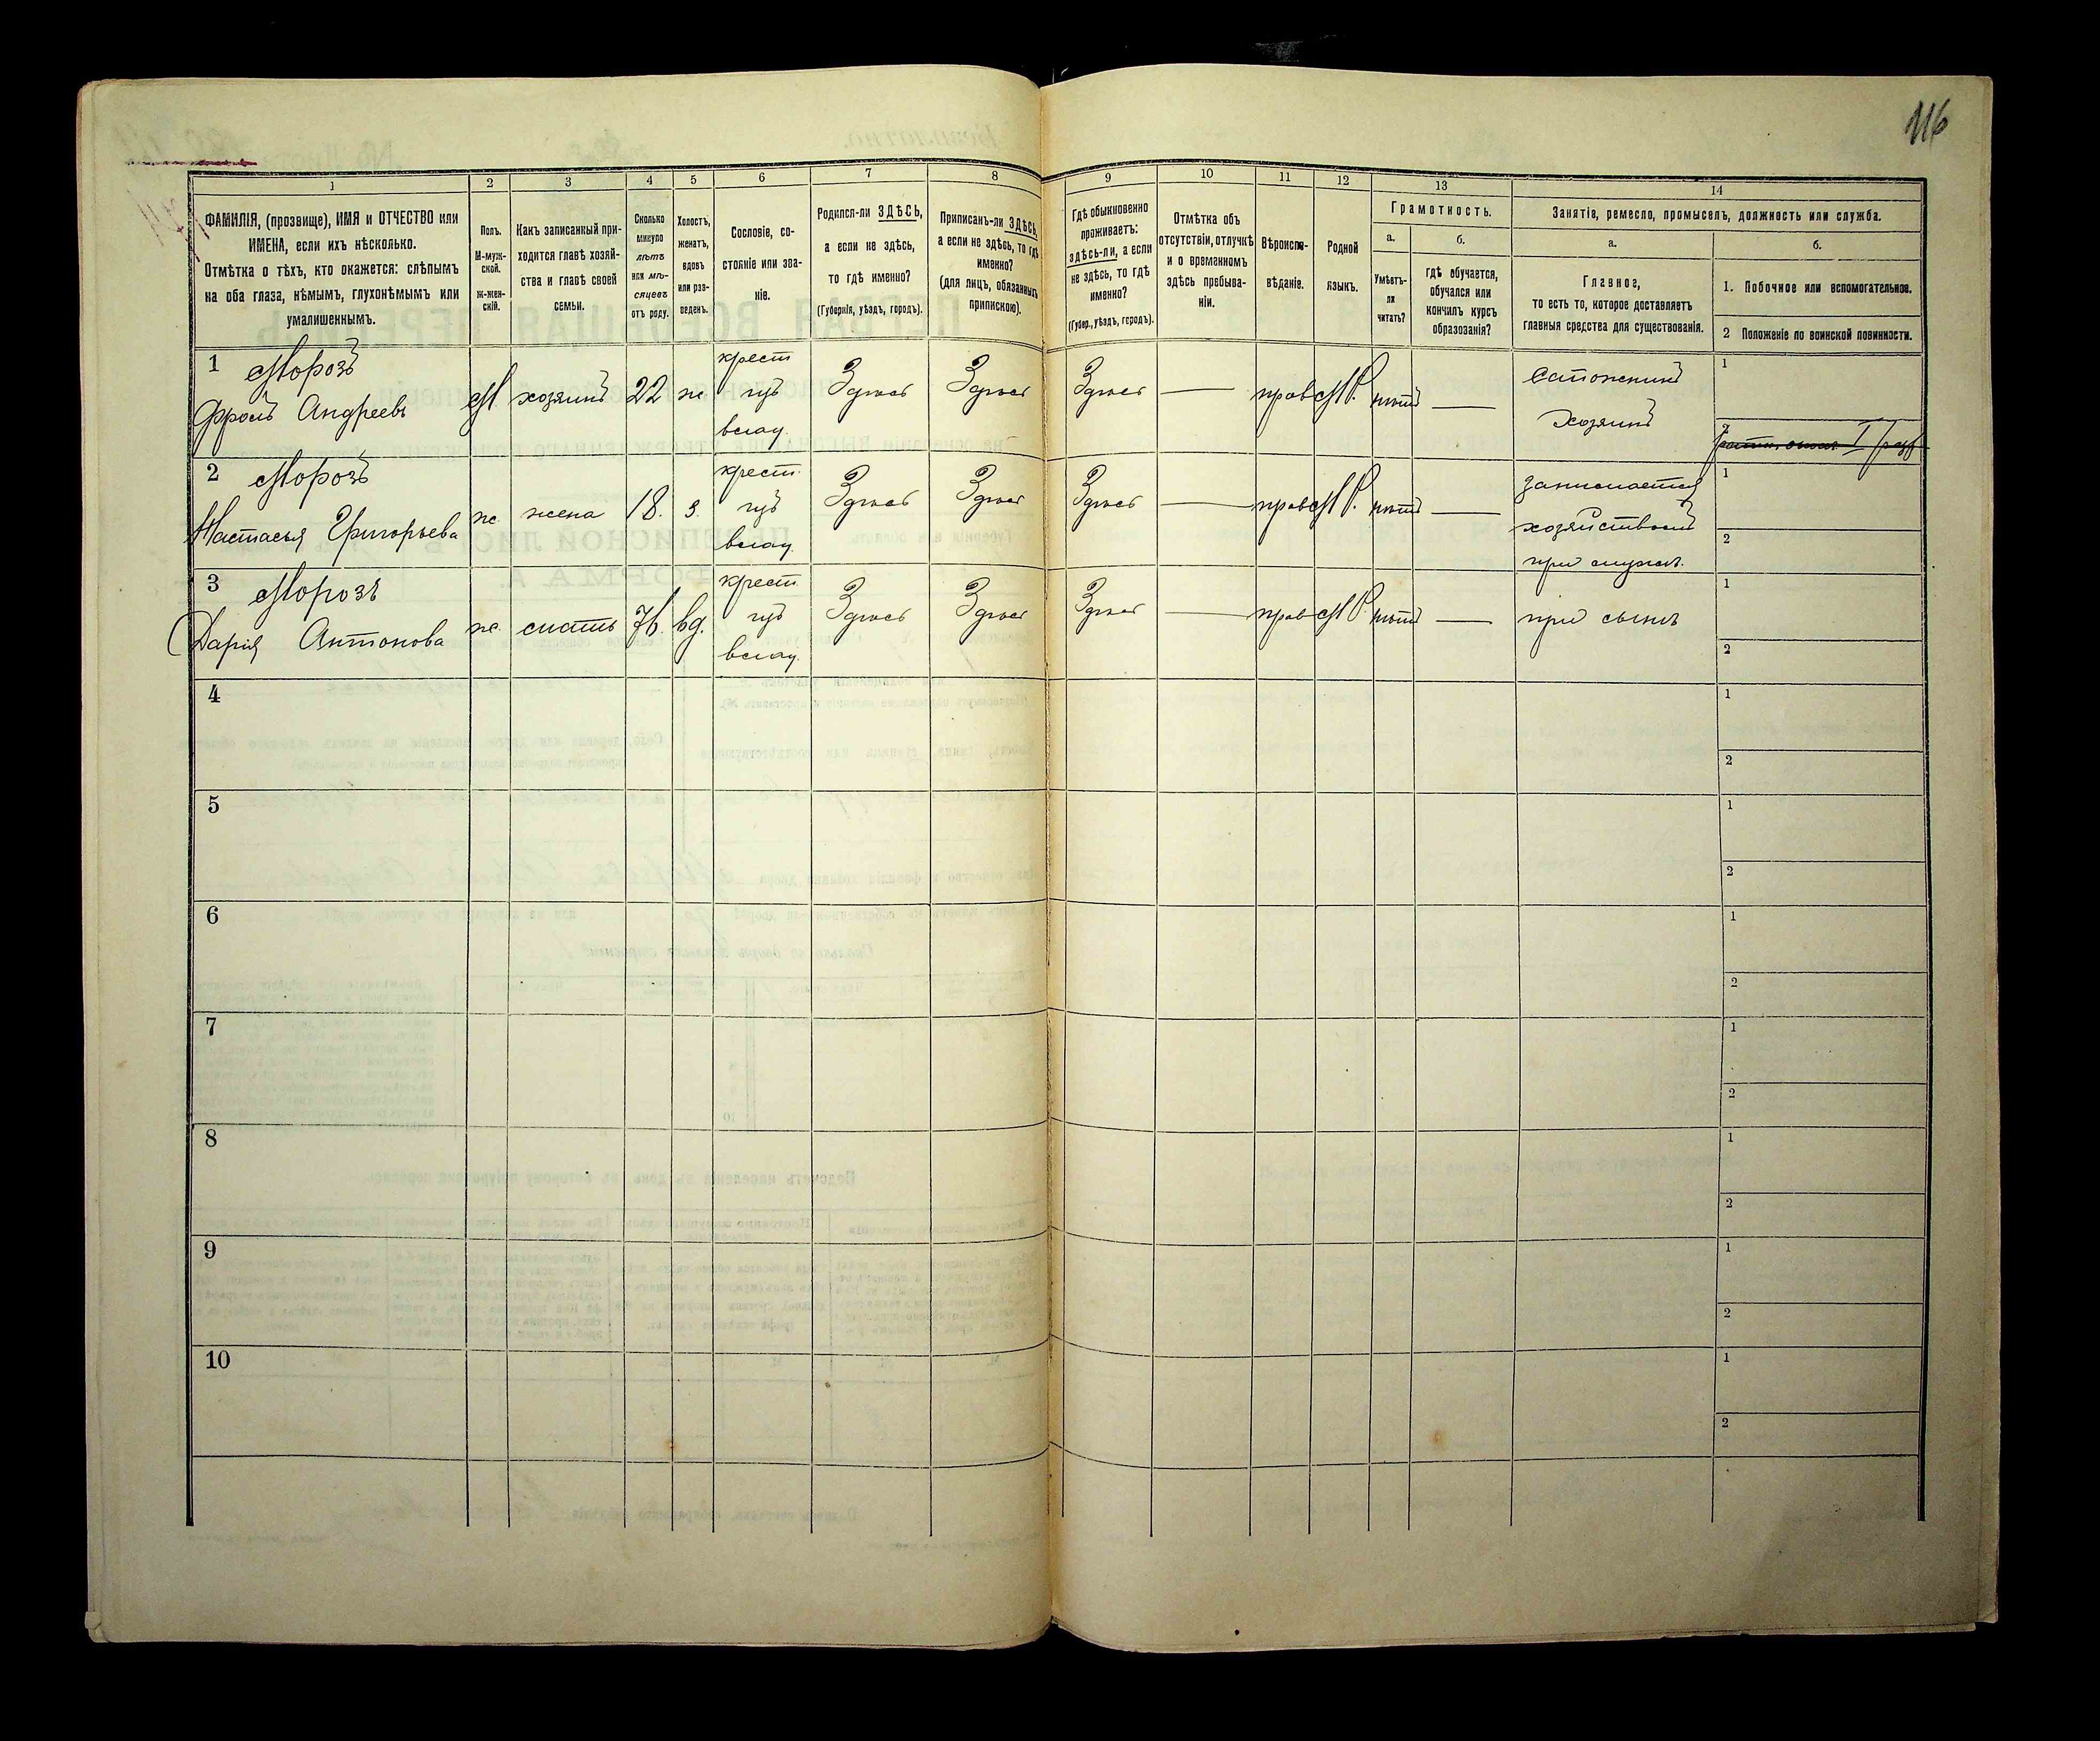 116
1 2 3 4 5 6 7 8 9 10 11 12 13 14
ФАМИЛІЯ, (прозвище), ИМЯ и ОТЧЕСТВО или
ИМЕНА, если ихъ нѣсколько.
Отмѣтка о тѣхъ, кто окажется: слѣпымъ
на оба глаза, нѣмымъ, глухонѣмымъ или
умалишеннымъ.
Полъ.
М-муж-
ской.
ж-жен-
скій.
Какъ записанный при-
ходится главѣ хозяй-
ства и главѣ своей
семьи.
Сколько
минуло
лѣтъ
или мѣ-
сяцевъ
отъ роду.
Холостъ,
женатъ,
вдовъ
или раз-
веденъ.
Сословіе, со-
стояніе или зва-
ніе.
Родился-ли ЗДѢСЬ,
а если не здѣсь,
то гдѣ именно?
(Губернія, уѣздъ, городъ).
Приписанъ-ли ЗДѢСЬ,
а если не здѣсь, то гдѣ
именно?
(для лицъ, обязанныхъ
припискою).
Гдѣ обыкновенно
проживаетъ:
здѣсь-ли, а если
не здѣсь, то гдѣ
именно?
(Губер., уѣздъ, городъ).
Отмѣтка объ
отсутствіи, отлучкѣ
и о временномъ
здѣсь пребыва-
ніи.
Вѣроиспо-
вѣданіе.
Родной
языкъ.
Грамотность.
а.
Умѣетъ-
ли
читать?
б.
гдѣ обучается,
обучался или
кончилъ курсъ
образозанія?
Занятіе, ремесло, промыселъ, должность или служба.
а.
Главное,
то есть то, которое доставляетъ
главныя средства для существованія.
б.
1. Побочное или вспомогательное.
2 Положеніе по воинской повинности.
1 Морозъ
Фролъ Андреевъ
М хозяинъ 22 ж
крест
изъ
влад.
Здѣсь Здѣсь Здѣсь — прав М.Р. нѣтъ —
Сапожникъ
Хозяинъ
1
2
I разр
2 Морозъ
Настасья Григорьева
ж. жена 18. з.
крест.
изъ
влад.
Здѣсь Здѣсь Здѣсь — прав М.Р. нѣтъ —
занимается
хозяйствомъ
при мужѣ.
1
2
3 Морозъ
Дарія Антонова
ж. мать 76. вд.
крест.
изъ
влад.
Здѣсь Здѣсь Здѣсь — прав М.Р. нѣтъ —
при сынѣ
1
2
4
1
2
5
1
2
6
1
2
7
1
2
8
1
2
9
1
2
10
1
2